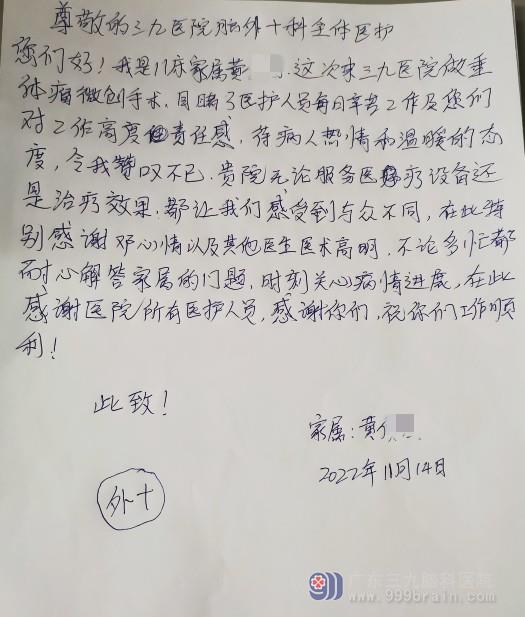 尊敬的三九医院脑外十科全体医护
您们好！我是11床家属黄 . 这次来三九医院做垂
体瘤微创手术，目睹了医护人员每日辛苦工作及您们
对工作高度的责任感，待病人热情和温暖的态
度，令我赞叹不已. 贵院无论服务医疗设备还
是治疗效果，都让我们感受到与众不同，在此特
别感谢邓心情以及其他医生医术高明，不论多忙都
耐心解答家属的问题，时刻关心病情进展，在此
感谢医院/所有医护人员，感谢你们，祝你们工作顺
利！
此致！
家属：黄
2022年11月14日
外十
广东三九脑科医院
www.999brain.com